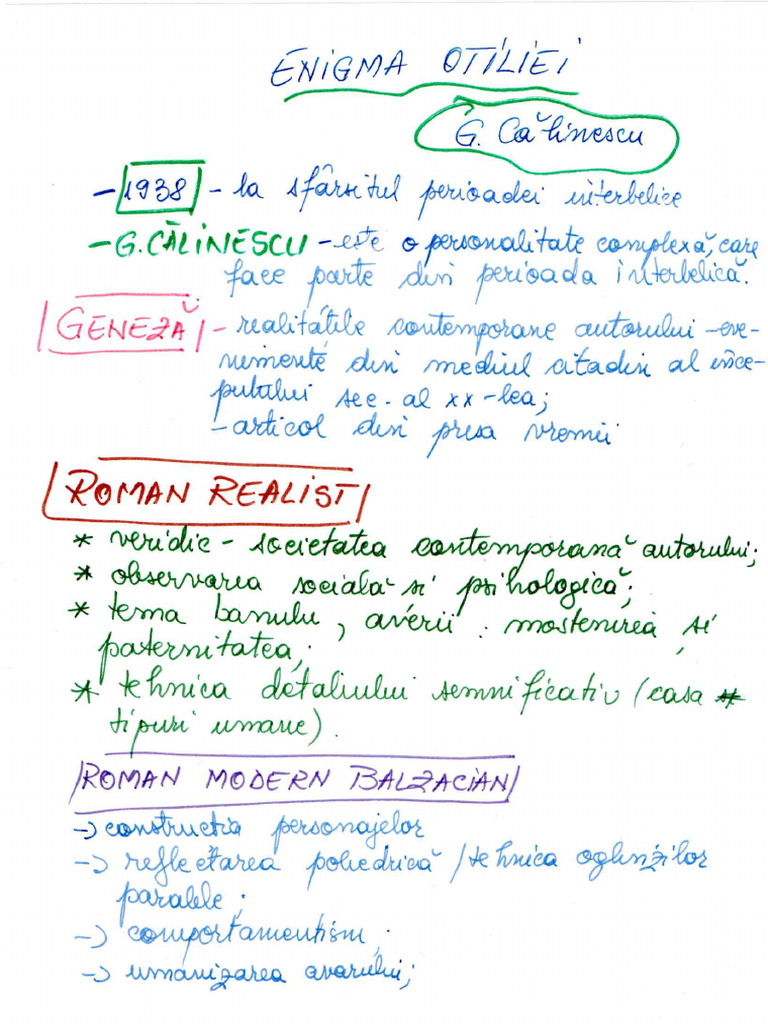 ENIGMA OTILIEI
G. Călinescu
- 1938 - la sfârsitul perioadei interbelice
- G. CĂLINESCU - este o personalitate complexă, care
face parte din perioada interbelică.
GENEZĂ - realitățile contemporane autorului - eve-
nimente din mediul citadin al înce-
putului sec. al xx-lea;
- articol din presa vremii
ROMAN REALIST
* veridic - societatea contemporană autorului;
* observarea socială si psihologică;
* tema banului, averii: mostenirea și
paternitatea;
* tehnica detaliului semnificativ (casa
tipuri umane).
ROMAN MODERN BALZACIAN
-> constructia personajelor
-> reflectarea poliedrică / tehnica oglinzilor
paralele;
-> comportamentism;
-> umanizarea avarului;